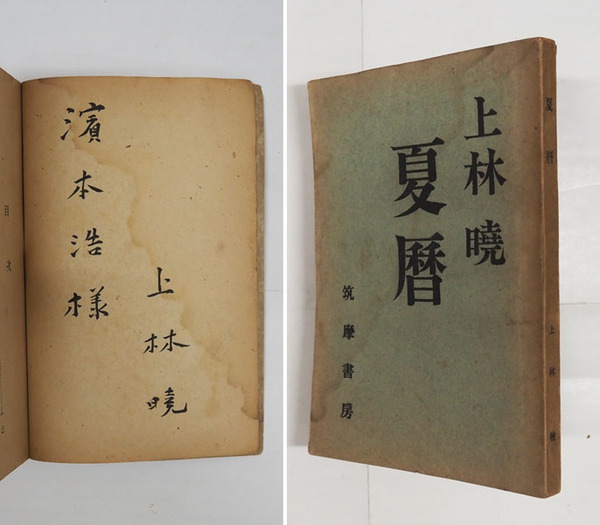 濱本浩様
上林曉
目次
上林曉
夏暦
筑摩書房
夏暦
上林曉